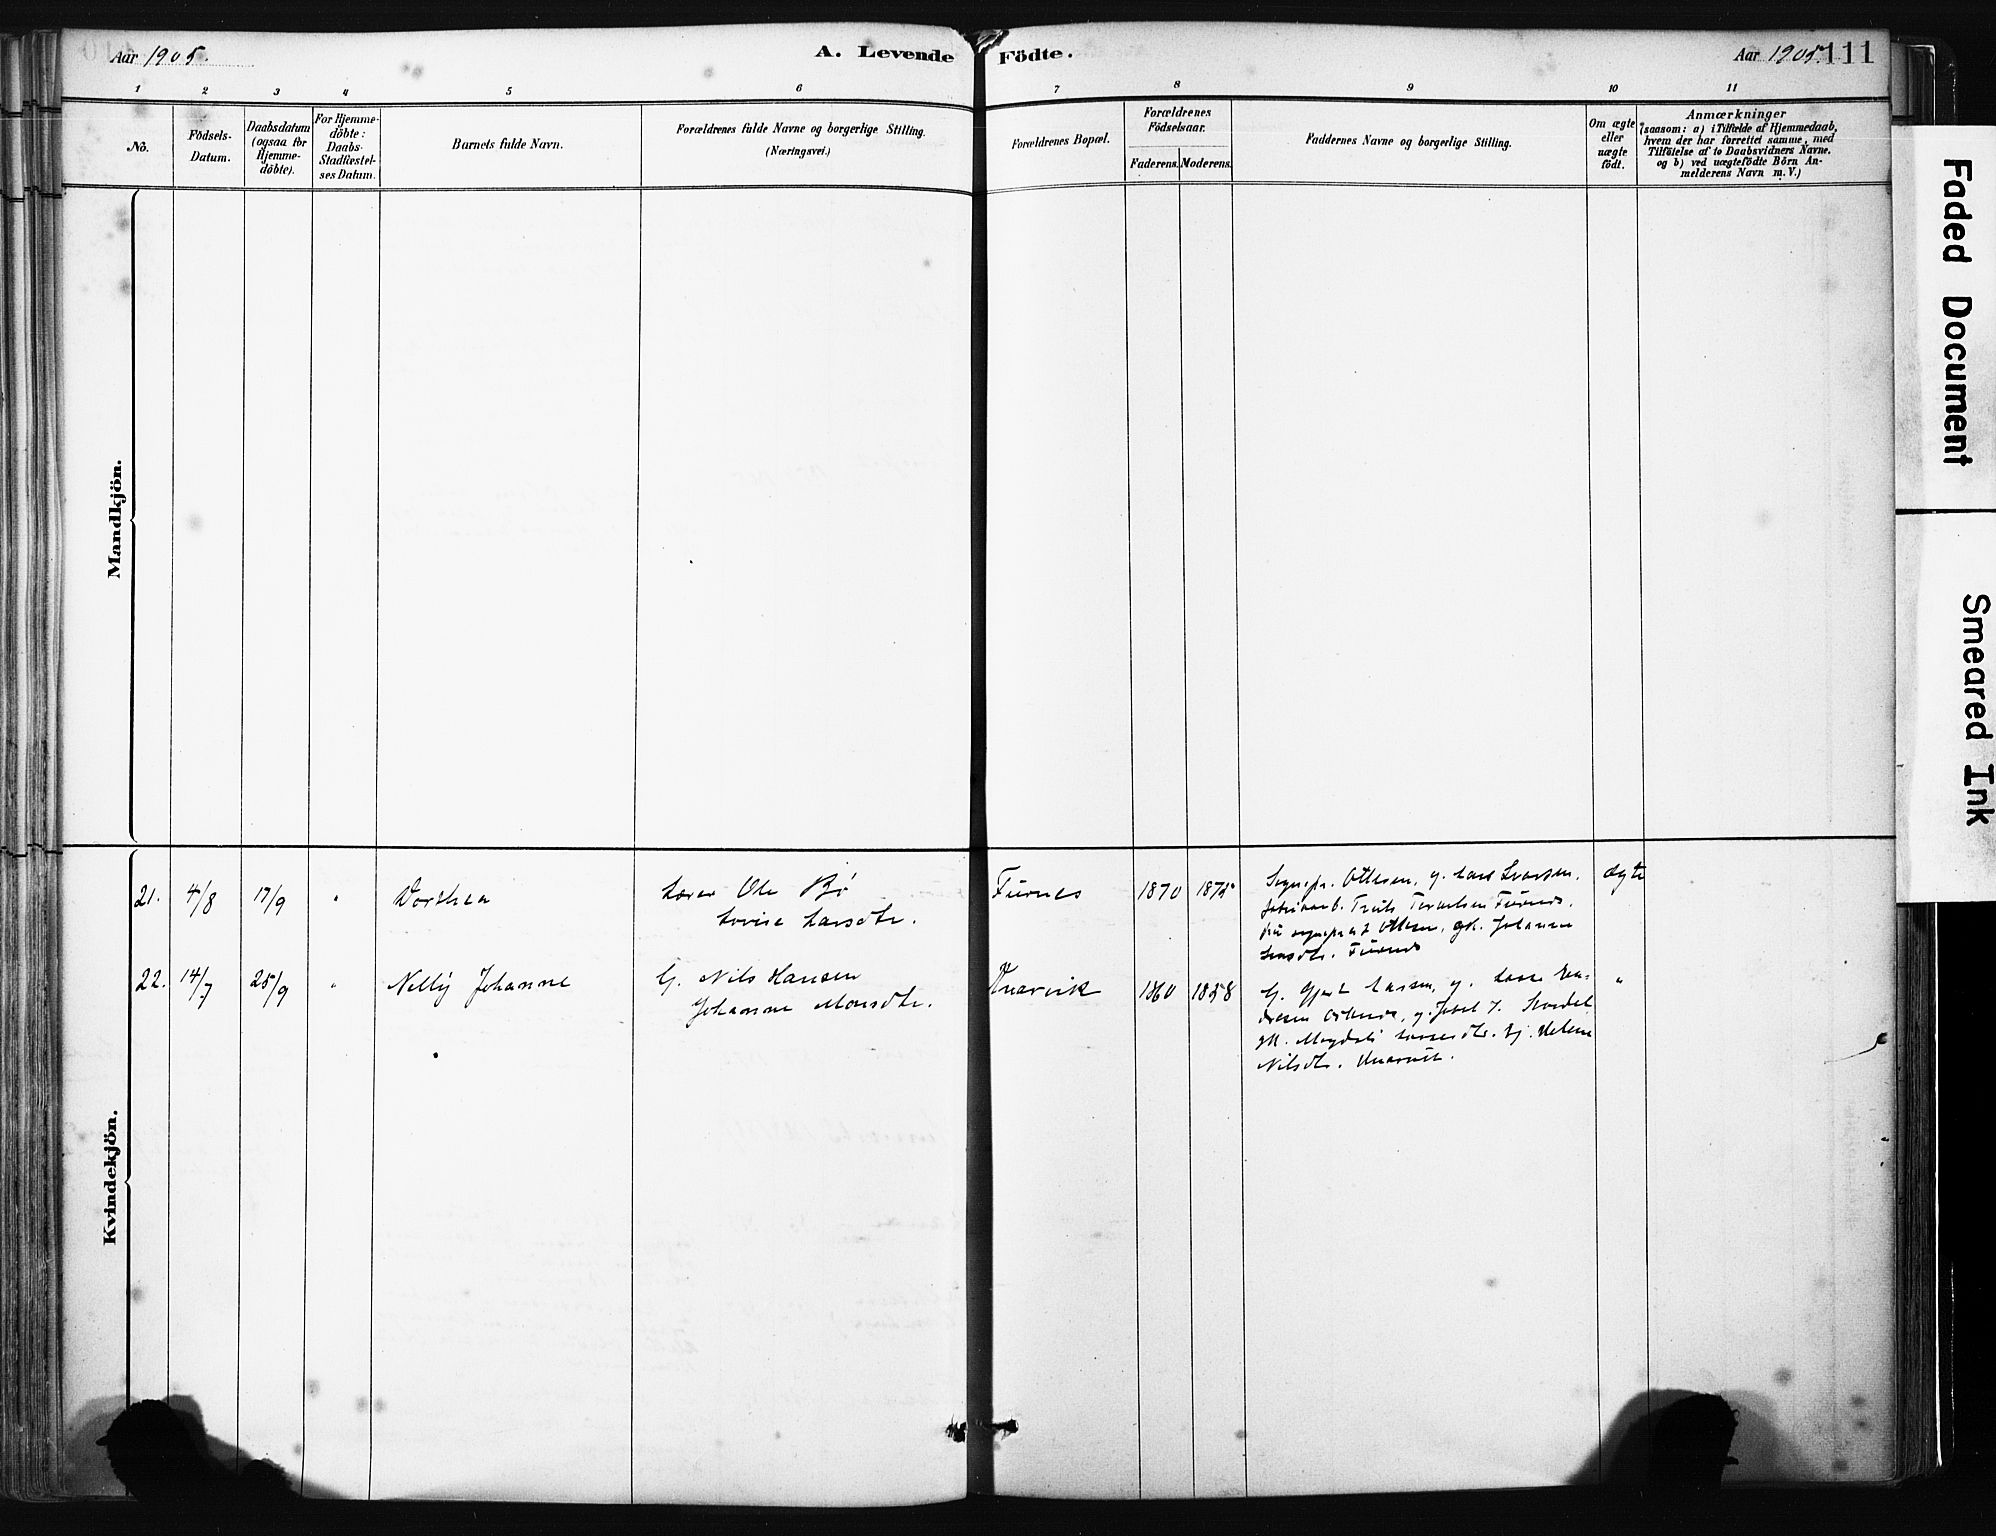 Aar 1905.
A. Levende Födte.
Aar 1905.
111
1 2 3 4 5 6 7 8 9 10 11
No.
Födsels-
Datum.
Daabsdatum
(ogsaa for
Hjemme-
döbte).
For Hjemme-
döbte:
Daabs-
Stadfæstel-
ses Datum.
Barnets fulde Navn.
Forældrenes fulde Navne og borgerlige Stilling.
(Næringsvei.)
Forældrenes Bopæl.
Forældrenes
Födselsaar.
Faderens. Moderens.
Faddernes Navne og borgerlige Stilling.
Om ægte
eller
uægte
födt.
Anmærkninger
(saasom: a) i Tilfælde af Hjemmedaab,
hvem der har forrettet samme, med
Tilföielse af to Daabsvidners Navne.
og b) ved uægtefödte Börn An-
melderens Navn m. V.)
Mandkjön.
Kvindekjön.
21. 4/8 17/9 " Dorthea
Lærer Ole Bö
Lovise Larsdtr.
Furnes 1870 1875
Ottesen, g. Lars
Furnes.
Ottesen, gk. Johanne
Furnes
ægte
22. 14/7 25/9 " Nelly Johanne
G. Nils Hansen
Johanne Monsdtr.
1860 1858
G. Gjert Larsen, g.
gk. Magdeli Helene
Nilsdtr.
"
Faded Document
Smeared Ink